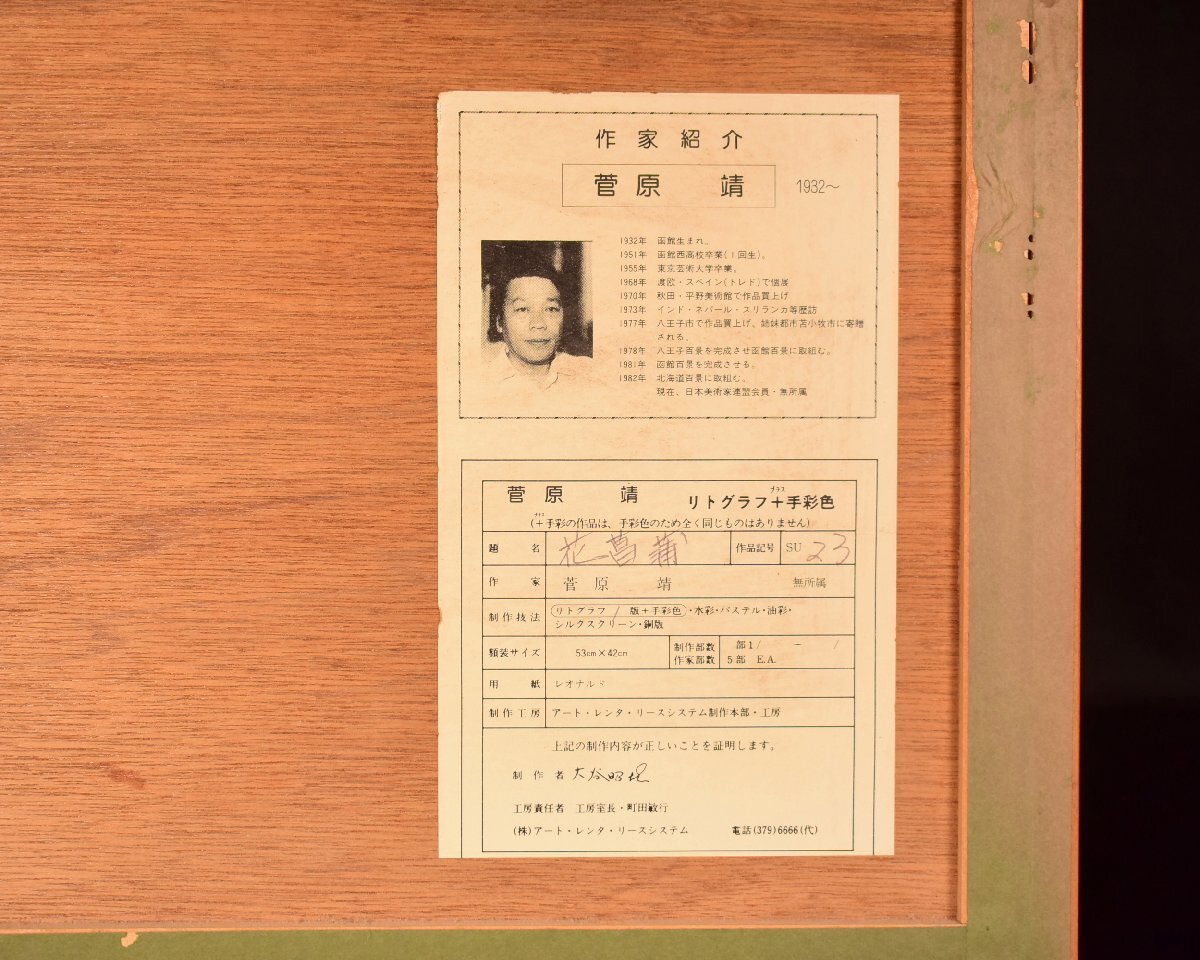 作家紹介
菅原 靖 1932～
1932年 函館生まれ。
1951年 函館西高校卒業(1回生)。
1955年 東京芸術大学卒業。
1968年 渡欧・スペイン(トレド)で個展
1970年 秋田・平野美術館で作品買上げ
1973年 インド・ネパール・スリランカ等歴訪
1977年 八王子市で作品買上げ、姉妹都市苫小牧市に寄贈
される。
1978年 八王子百景を完成させ函館百景に取組む。
1981年 函館百景を完成させる。
1982年 北海道百景に取組む。
現在、日本美術家連盟会員・無所属
菅原 靖 リトグラフ+手彩色
プラス
プラス
(+手彩の作品は、手彩色のため全く同じものはありません)
題名 花菖蒲 作品記号 SU 23
作家 菅原 靖 無所属
制作技法 リトグラフ / 版+手彩色・水彩・パステル・油彩・
シルクスクリーン・銅版
額装サイズ 53cm×42cm 制作部数 部1/ － /
作家部数 5部 E.A.
用紙 レオナルド
制作工房 アート・レンタ・リースシステム制作本部・工房
上記の制作内容が正しいことを証明します。
制作者
工房責任者 工房室長・町田敏行
(株)アート・レンタ・リースシステム 電話(379)6666(代)